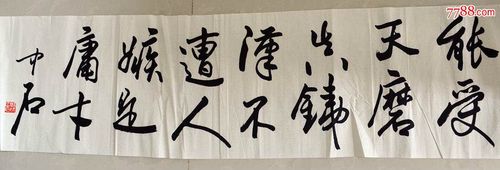 能受
天磨
真鐵
漢不
遭人
嫉是
庸才
中石
7788.com